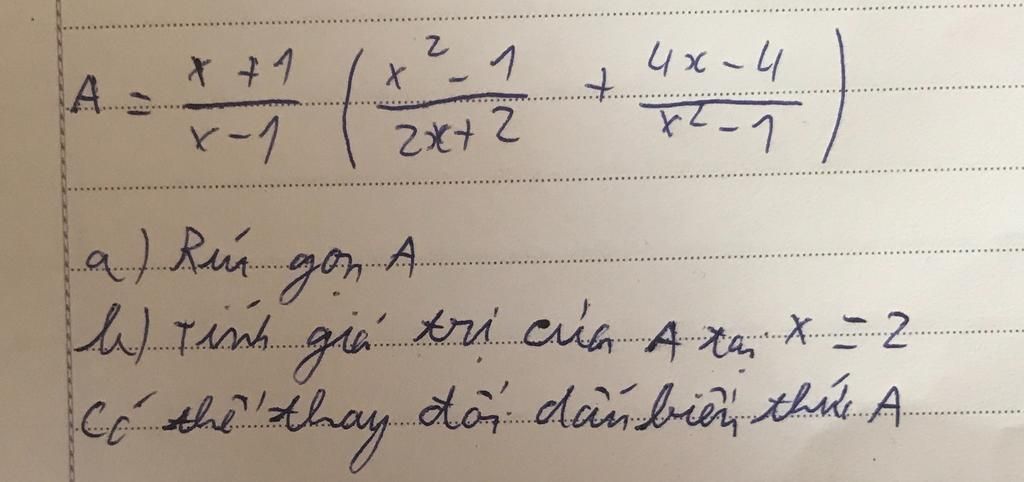 A = \frac{x+1}{x-1} \left( \frac{x^2-1}{2x+2} + \frac{4x-4}{x^2-1} \right)
a) Rút gọn A
b) Tính giá trị của A tại x = 2
Có thể thay đổi dấu biểu thức A